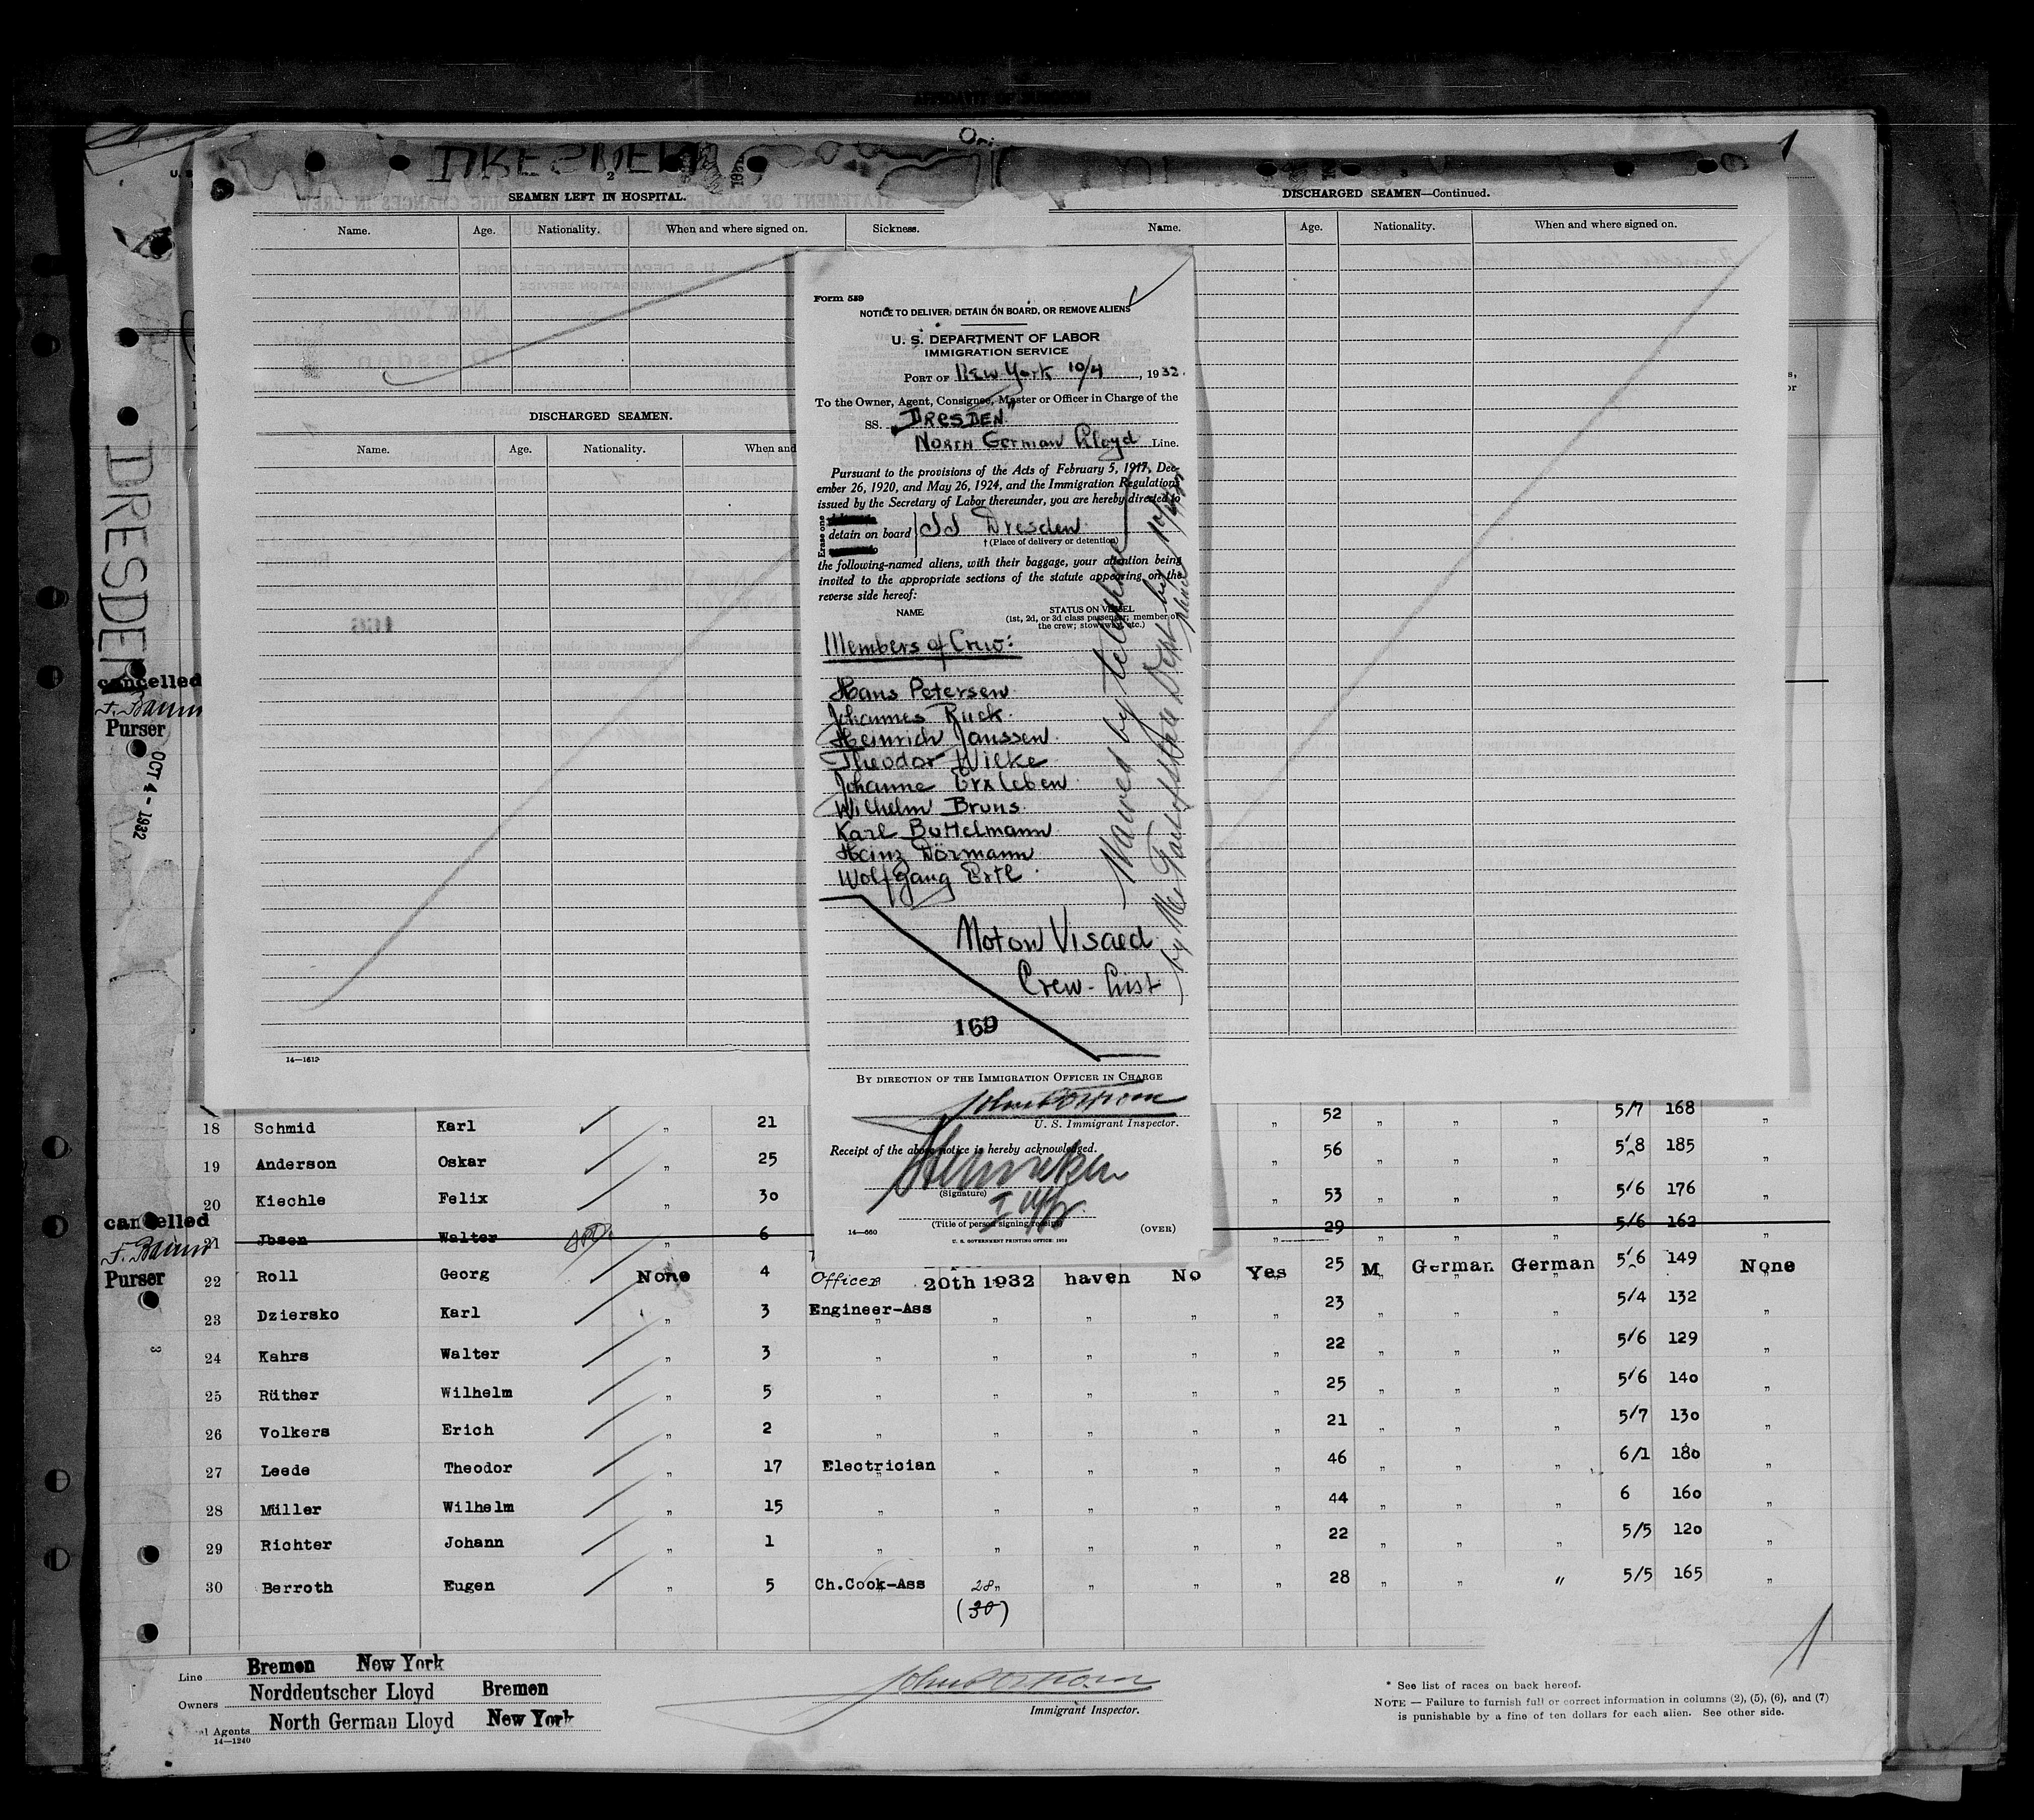 DRESDEN
Ori
1
2
SEAMEN LEFT IN HOSPITAL.
Name. Age. Nationality. When and where signed on. Sickness.
DISCHARGED SEAMEN.
Name. Age. Nationality. When and
14—1612
DISCHARGED SEAMEN—Continued.
Name. Age. Nationality. When and where signed on.
Form 559
NOTICE TO DELIVER, DETAIN ON BOARD, OR REMOVE ALIENS
U. S. DEPARTMENT OF LABOR
IMMIGRATION SERVICE
PORT OF New York 10/4, 1932.
To the Owner, Agent, Consignee, Master or Officer in Charge of the
SS. "DRESDEN"
North German Lloyd Line.
Pursuant to the provisions of the Acts of February 5, 1917, Dec-
ember 26, 1920, and May 26, 1924, and the Immigration Regulations
issued by the Secretary of Labor thereunder, you are hereby directed to
Erase one
detain on board SS Dresden
† (Place of delivery or detention)
the following-named aliens, with their baggage, your attention being
invited to the appropriate sections of the statute appearing on the
reverse side hereof:
NAME STATUS ON VESSEL
(1st, 2d, or 3d class passenger; member of
the crew; stowaway, etc.)
Members of Crew:
Hans Petersen
Johannes Ruck
Heinrich Janssen
Theodor Wilke
Johanne Erxleben
Wilhelm Bruns
Karl Buttelmann
Heinz Dörmann
Wolfgang Ertl
Not on Visaed
Crew-List
169
Waived by telephone
BY DIRECTION OF THE IMMIGRATION OFFICER IN CHARGE
U. S. Immigrant Inspector.
Receipt of the above notice is hereby acknowledged.
(Signature)
(Title of person signing receipt)
14—660 (OVER)
U. S. GOVERNMENT PRINTING OFFICE: 1929
DRESDEN
cancelled
F. Baum
Purser
OCT 4 - 1932
cancelled
F. Baum
Purser
3
18 Schmid Karl " 21 " 52 " " " 5/7 168 "
19 Anderson Oskar " 25 " 56 " " " 5/8 185 "
20 Kiechle Felix " 30 " 53 " " " 5/6 176 "
21 Jbsen Walter " 6 " 29 " " " 5/6 162 "
22 Roll Georg None 4 Officer 20th 1932 haven No Yes 25 M German German 5/6 149 None
23 Dziersko Karl " 3 Engineer-Ass " " " " 23 " " " 5/4 132 "
24 Kahrs Walter " 3 " " " " " 22 " " " 5/6 129 "
25 Rüther Wilhelm " 5 " " " " " 25 " " " 5/6 140 "
26 Volkers Erich " 2 " " " " " 21 " " " 5/7 130 "
27 Leede Theodor " 17 Electrician " " " " 46 " " " 6/1 180 "
28 Müller Wilhelm " 15 " " " " " 44 " " " 6 160 "
29 Richter Johann " 1 " " " " " 22 " " " 5/5 120 "
30 Berroth Eugen " 5 Ch.Cook-Ass " " " " 28 " " " 5/5 165 "
28
(30)
Line Bremen New York
Owners Norddeutscher Lloyd Bremen
Agents North German Lloyd New York
14—1240
Immigrant Inspector.
* See list of races on back hereof.
NOTE — Failure to furnish full or correct information in columns (2), (5), (6), and (7)
is punishable by a fine of ten dollars for each alien. See other side.